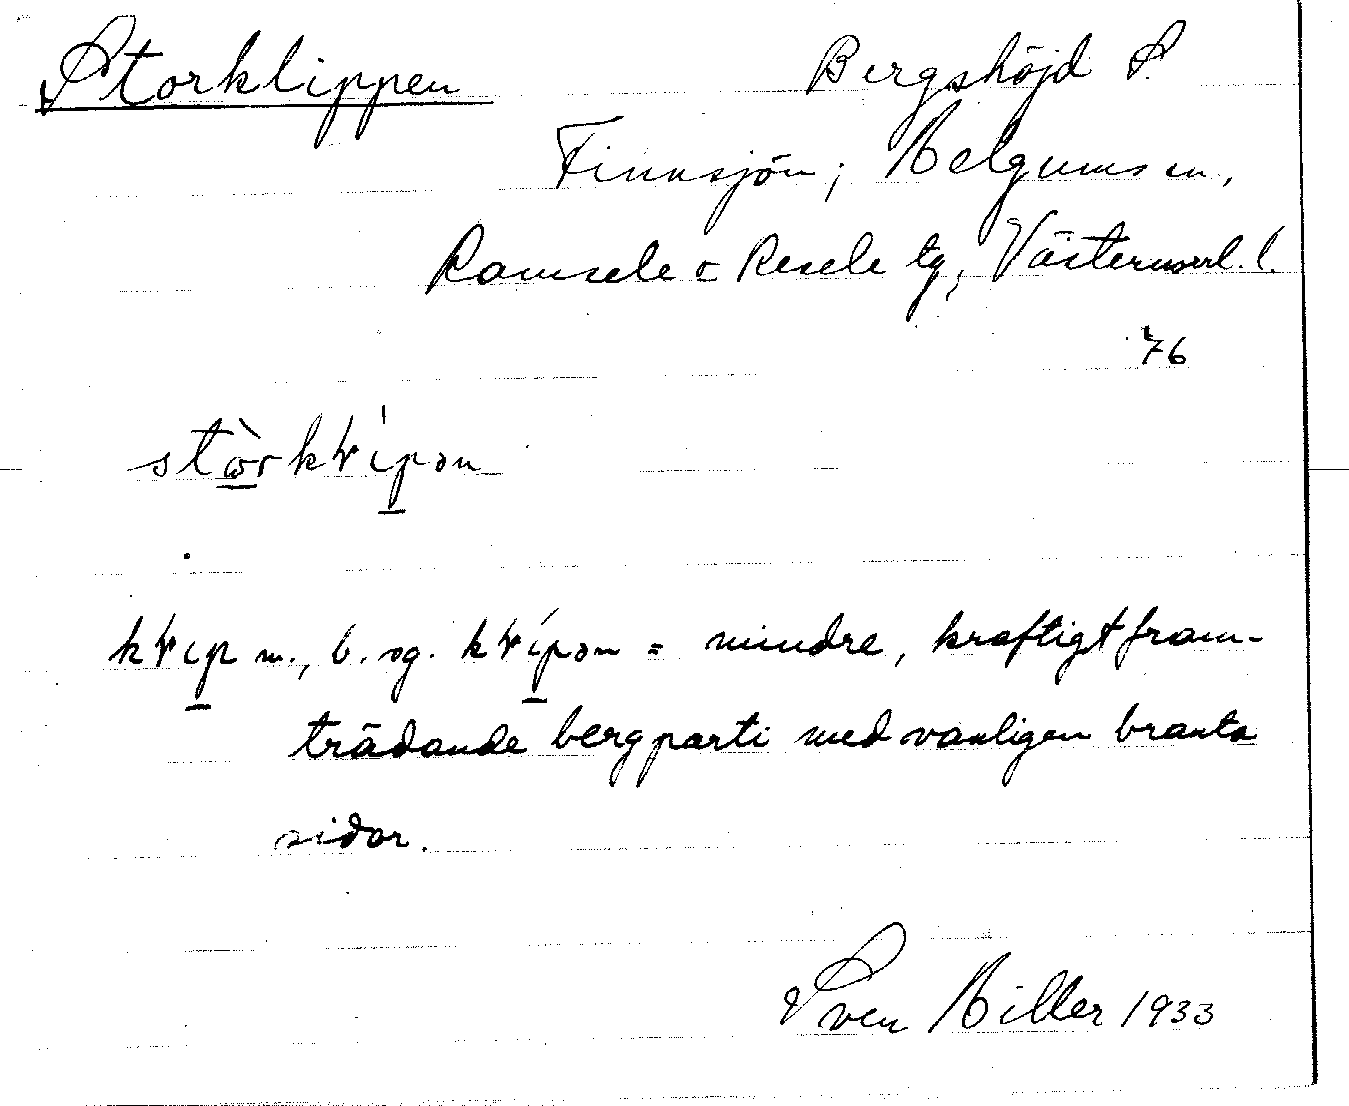 Storklippen Bergshöjd S.
Finnsjön; Helgums sn,
Ramsele o Resele tg, Västernorrl. l.
76
stòrkłípən
kłip m., b. sg. kłípən = mindre, kraftigt fram-
trädande bergparti med vanligen branta
sidor.
Sven Hiller 1933